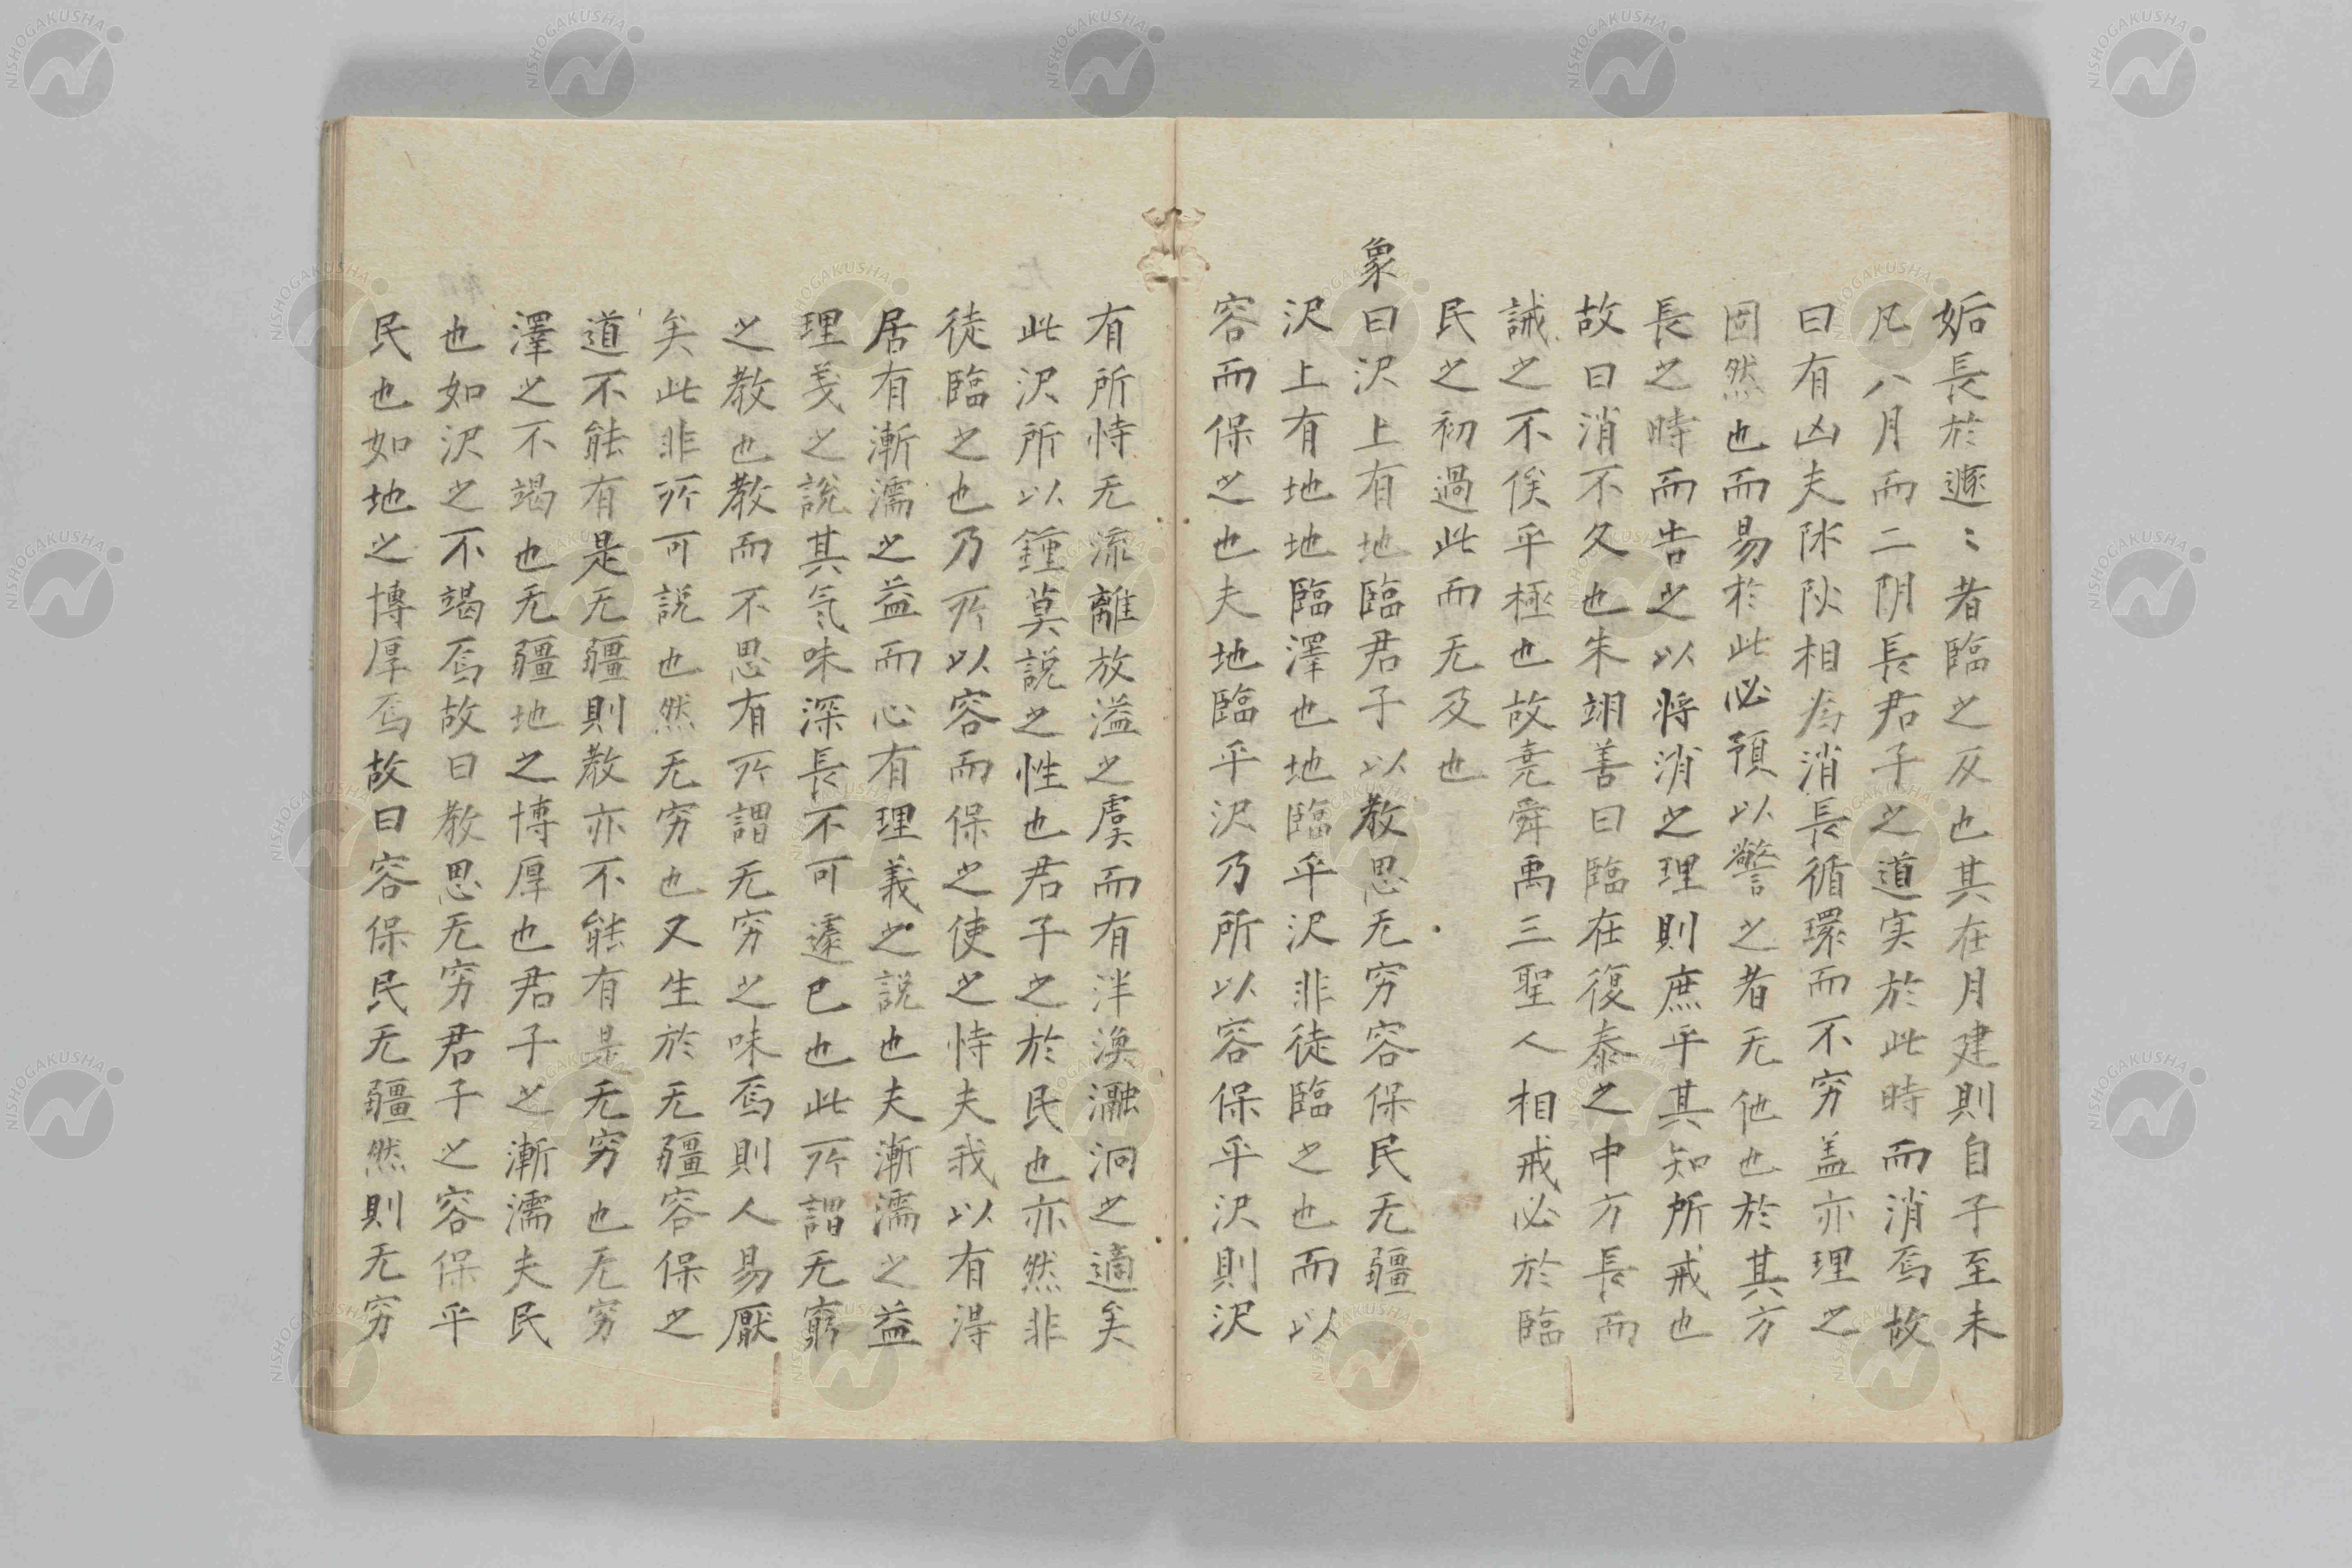 姤長於遯〻者臨之反也其在月建則自子至未
凡八月而二阴長君子之道实於此時而消焉故
曰有凶夫阦阥相為消長循環而不穷盖亦理之
固然也而易於此必預以警之者无他也於其方
長之時而告之以将消之理則庶乎其知所戒也
故曰消不久也朱翊善曰臨在復泰之中方長而
誡之不俟乎極也故堯舜禹三聖人相戒必於臨
民之初過此而无及也
象曰沢上有地臨君子以教思无穷容保民无疆
沢上有地地臨澤也地臨乎沢非徒臨之也而以
容而保之也夫地臨乎沢乃所以容保乎沢則沢
有所恃无流離放溢之虞而有泮渙瀜洞之適矣
此沢所以鍾莫説之性也君子之於民也亦然非
徒臨之也乃所以容而保之使之恃夫我以有得
居有漸濡之益而心有理義之説也夫漸濡之益
理義之說其気味深長不可遽已也此所謂无窮
之教也教而不思有所謂无穷之味焉則人易厭
矣此非所可説也然无穷也又生於无疆容保之
道不能有是无疆則教亦不能有是无穷也无穷
澤之不竭也无疆地之博厚也君子之漸濡夫民
也如沢之不竭焉故曰教思无穷君子之容保乎
民也如地之博厚焉故曰容保民无疆然則无穷
NISHOGAKUSHA